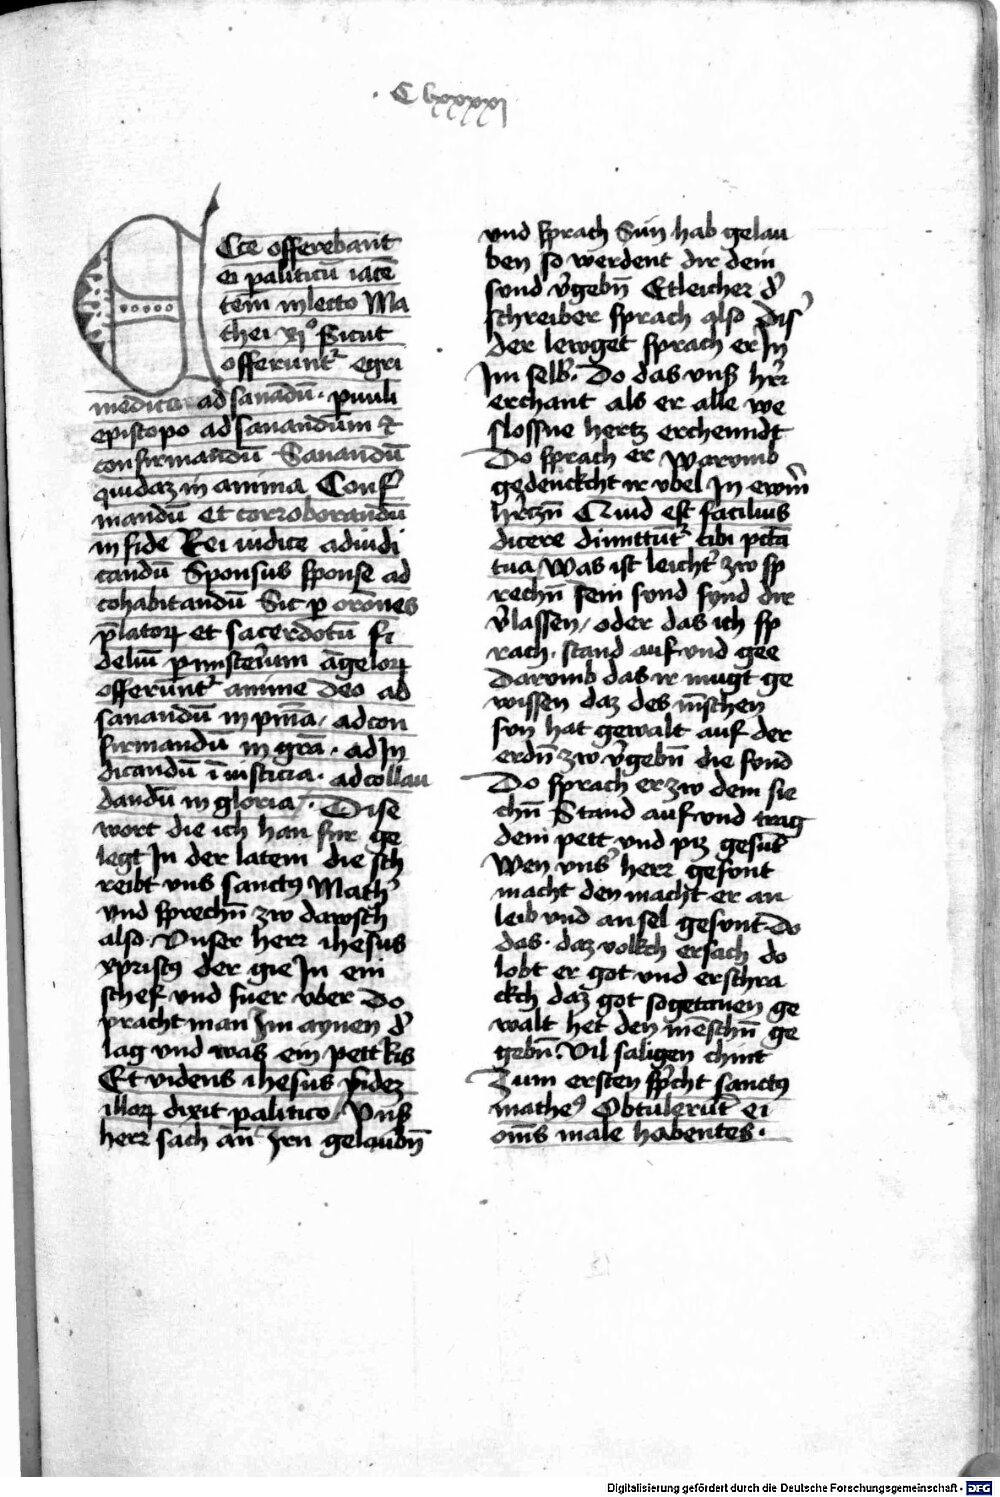 C lxxxxi
Ecce offerebant
ei paliticū iacē
tem in lecto Ma
thei xi° Sicut
offerunt᷑ egri
medico ad sanādū · puuli
episcopo ad sanandum et
confirmandū Sanandū
quidaz in anima Conf
mandū et corroborandū
in fide Rei iudice adiudi
candū Sponsus sponse ad
cohabitandū Sic p orōnes
p̄latorꝝ et sacerdotū fi
deliū p misterium āgelorꝝ
offerunt᷑ anime deo ad
sanandū in pnīa / ad con
firmandū in grā · ad In
dicandū ī iusticia · ad collau
dandū in gloria / · Dise
wort die ich han fur ge
legt In der latein die sch
reibt vns sanctꝰ Math᷑
vnd sprechn̄ zw dawsch
also · Vnser herr ihesus
xpristꝰ der gie In ein
schef vnd fuer vber Do
pracht man Im aynen d᷑
lag vnd was ein pett kis
Et videns ihesus fidez
illorꝝ dixit palitico / Vnß
herr sach an Irn gelaubn̄
vnd sprach Sun hab gelau
ben so werdent dir dein
sund v᷑gebn̄ Etleicher d᷑
schreiber sprach also dis᷑
der lewget sprach er In
Im selb᷑ · Do das vnß hr᷑r
erchant als er alle we
slossne hertz erchenndt
Do sprach er warvmb
gedenckcht ir vbel In ewrm̄
hr᷑czn̄ Quid est facilius
dicere dimittunt᷑ tibi pctā
tua / Was ist leicht᷑ zw sp
rechn̄ Dein sund synd dir
v᷑lassen / oder das ich sp
rach · stand auf vnd gee
Darvmb das ir mugt ge
wissen daz des mēschen
sun hat gewalt auf der
erdn̄ zw v᷑gebn̄ die sund
Do sprach er zw dem sie
chn̄ Stand auf vnd trag
dein pett vnd piz gesūt
Wen vns᷑ herr gesunt
macht den macht er an
leib vnd an sel gesunt Do
das · daz volkch ersach do
lobt er got vnd erschra
ckch daz got sogetanen ge
walt het den mēschn̄ ge
gebn̄ · Vil saligen chint
Zum ersten spicht sanctꝰ
matheꝰ Obtulerūt ei
om̄s male habentes ·
Digitalisierung gefördert durch die Deutsche Forschungsgemeinschaft - DFG